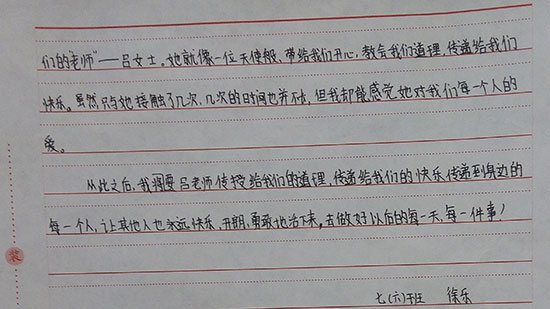 们的"老师"——吕女士。她就像一位天使般,带给我们开心,教会我们道理,传递给我们
快乐。虽然只与她接触了几次,几次的时间也并不长,但我却能感觉她对我们每一个人的
爱。
从此之后,我将要吕老师传授给我们的道理,传递给我们的快乐传递到身边的
每一个人,让其他人也永远快乐,开朗,勇敢地活下来。去做好以后的每一天,每一件事!
七(六)班 徐乐